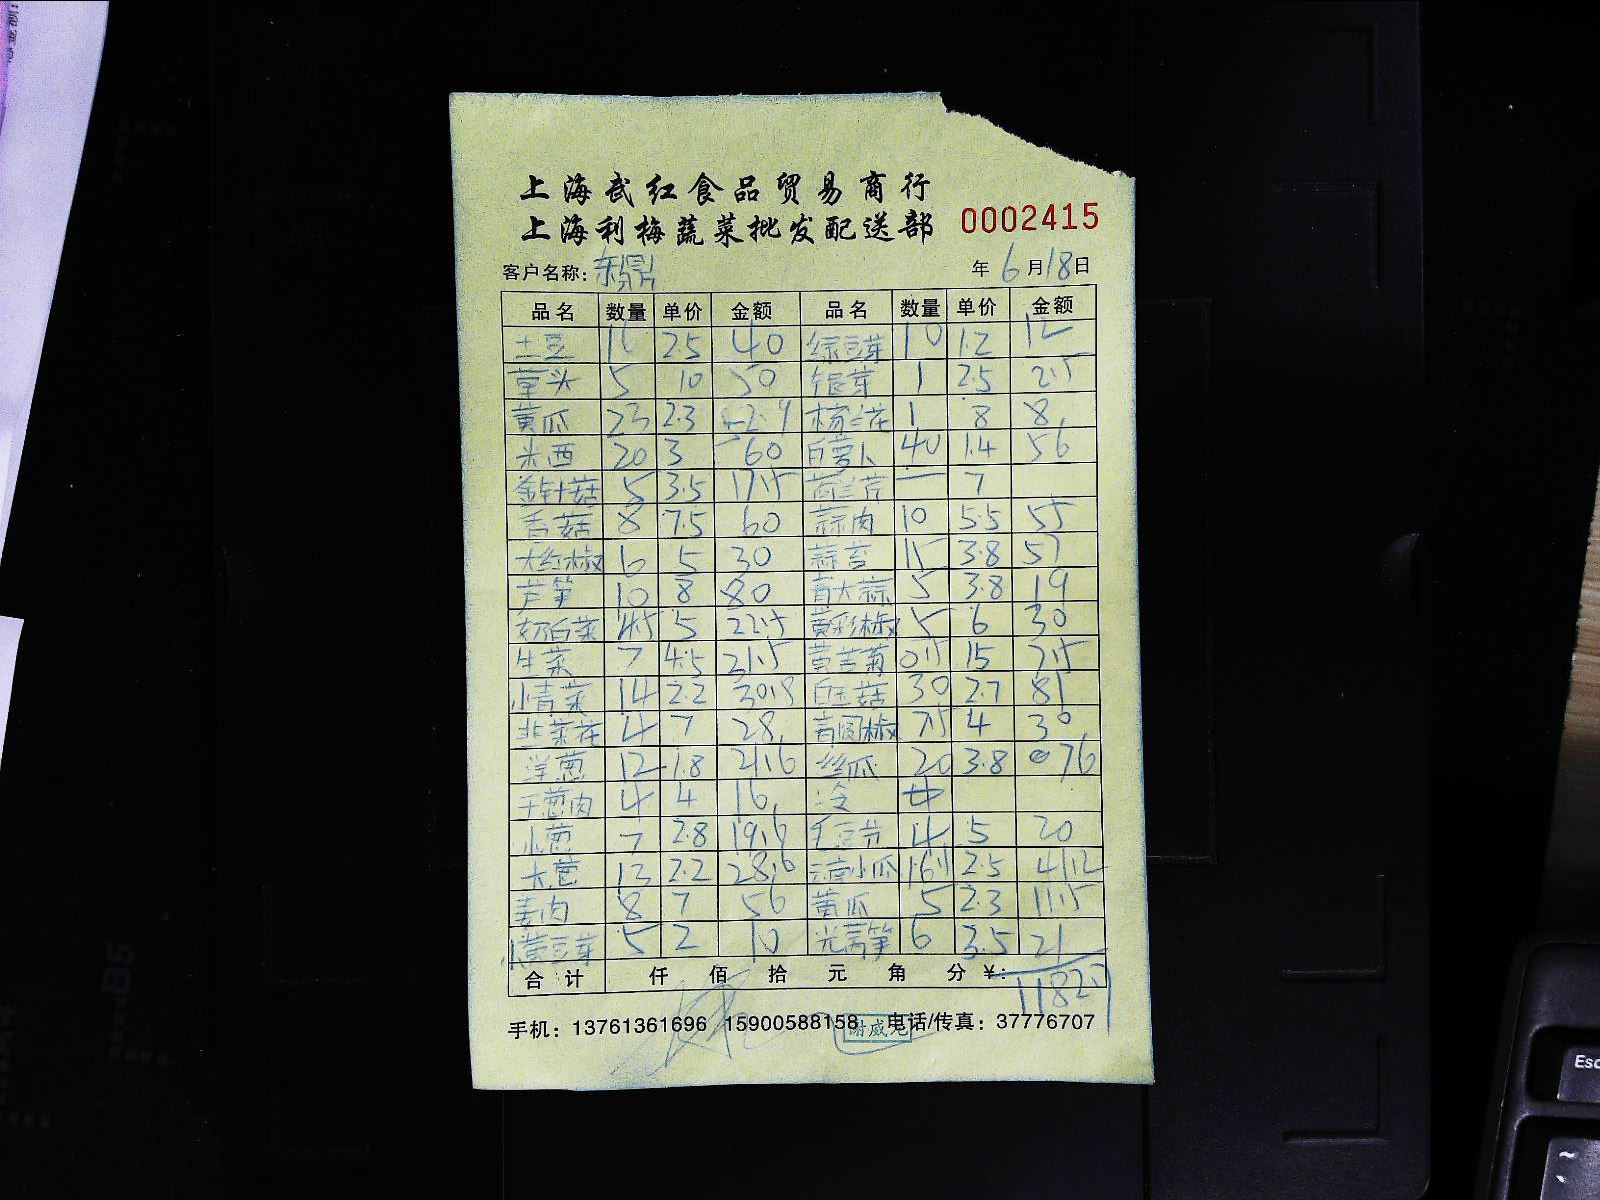 上海武红食品贸易商行
上海利梅蔬菜批发配送部 0002415
客户名称: 东鼎 年 6 月 18 日
品名 数量 单价 金额 品名 数量 单价 金额
土豆 16 2.5 40 绿豆芽 10 1.2 12
草头 5 10 50 银芽 1 2.5 2.5
黄瓜 23 2.3 52.9 1 8 8.
米西 20 3 60 白萝卜 40 1.4 56
金针菇 5 3.5 17.5 荷兰芹 — 7
香菇 8 7.5 60 蒜肉 10 5.5 55
大红椒 6 5 30 蒜苔 15 3.8 57
芦笋 10 8 80 青大蒜 5 3.8 19
奶白菜 4.5 5 22.5 黄彩椒 5 6 30
生菜 7 4.5 31.5 黄苦菊 0.5 15 7.5
小青菜 14 2.2 30.8 白玉菇 30 2.7 81
韭菜花 4 7 28. 青圆椒 7.5 4 30
洋葱 12 1.8 21.6 丝瓜 20 3.8 76
干葱肉 4 4 16.
小葱 7 2.8 19.6 毛豆节 4 5 20
大葱 13 2.2 28.6 云南小瓜 2.5 41.2
姜肉 8 7 56 黄瓜 5 2.3 11.5
小黄豆芽 5 2 10 光莴笋 6 3.5 21
合计 仟 佰 拾 元 角 分 ¥:
手机: 13761361696 15900588158 电话/传真: 37776707